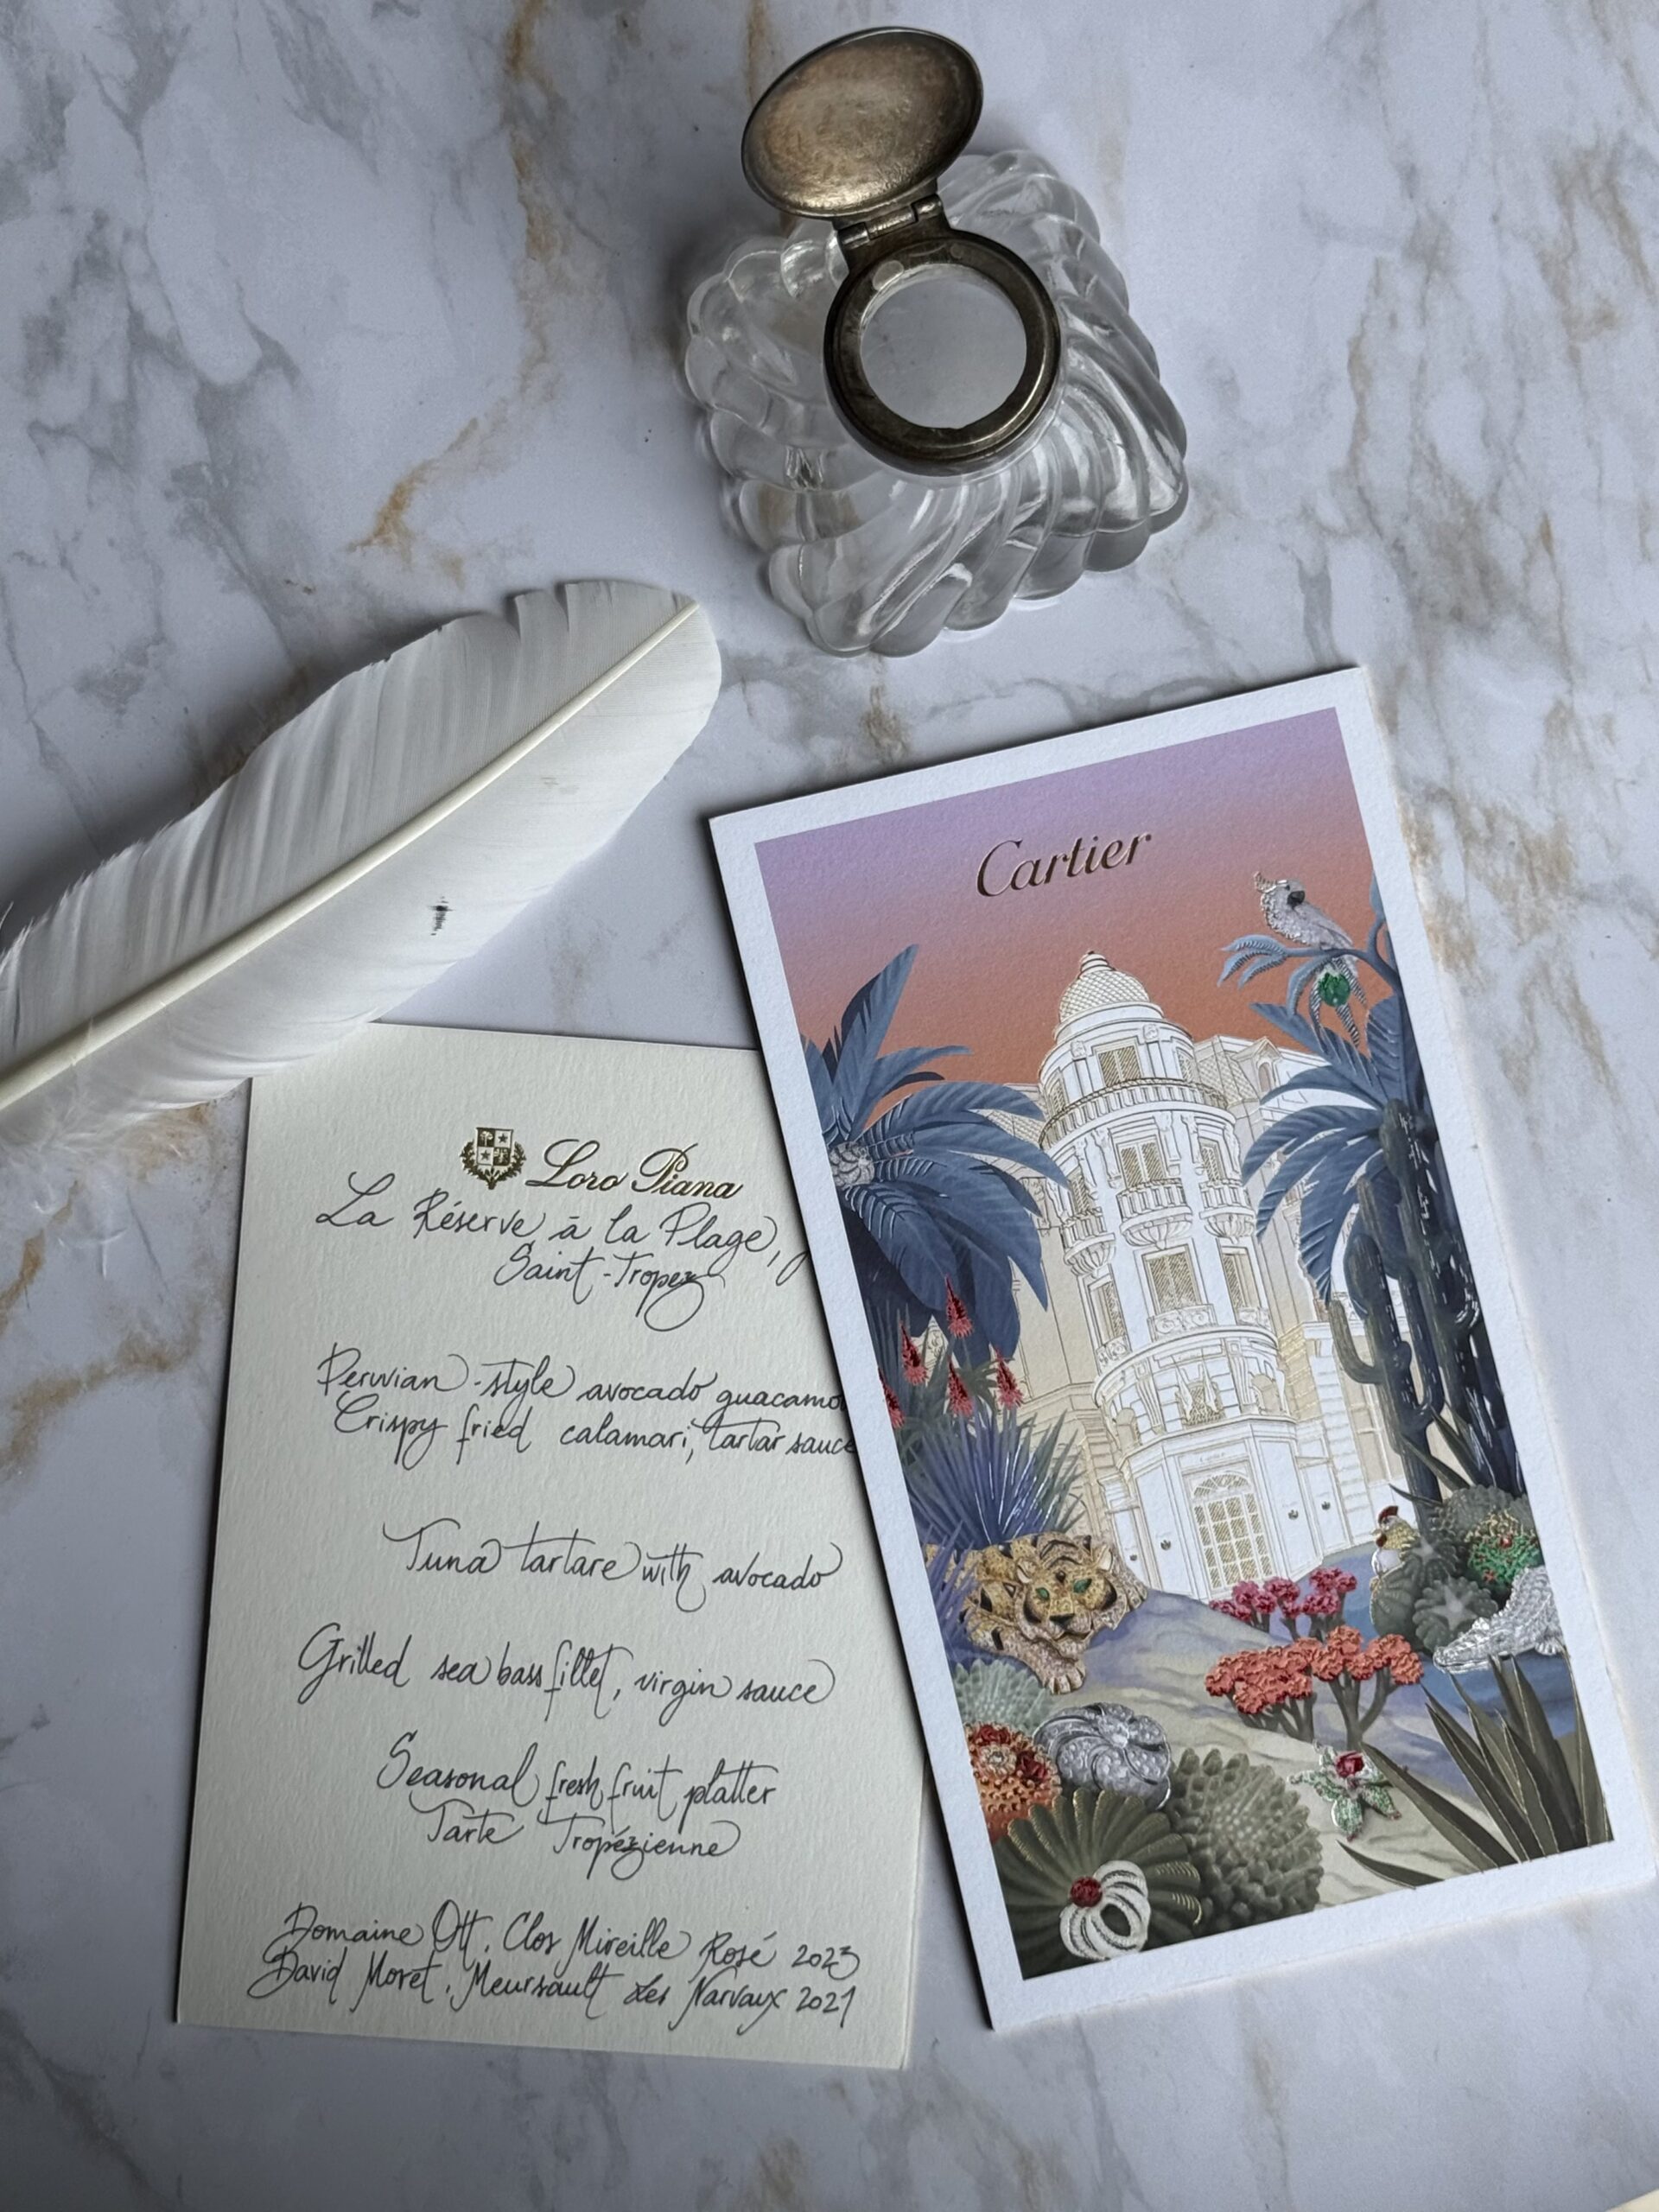 Cartier
Loro Piana
La Réserve à la Plage,
Saint-Tropez
Peruvian-style avocado guacamo
Crispy fried calamari, tartar sauce
Tuna tartare with avocado
Grilled sea bass fillet, virgin sauce
Seasonal fresh fruit platter
Tarte Tropézienne
Domaine Ott, Clos Mireille Rosé 2023
David Moret, Meursault Les Narvaux 2021